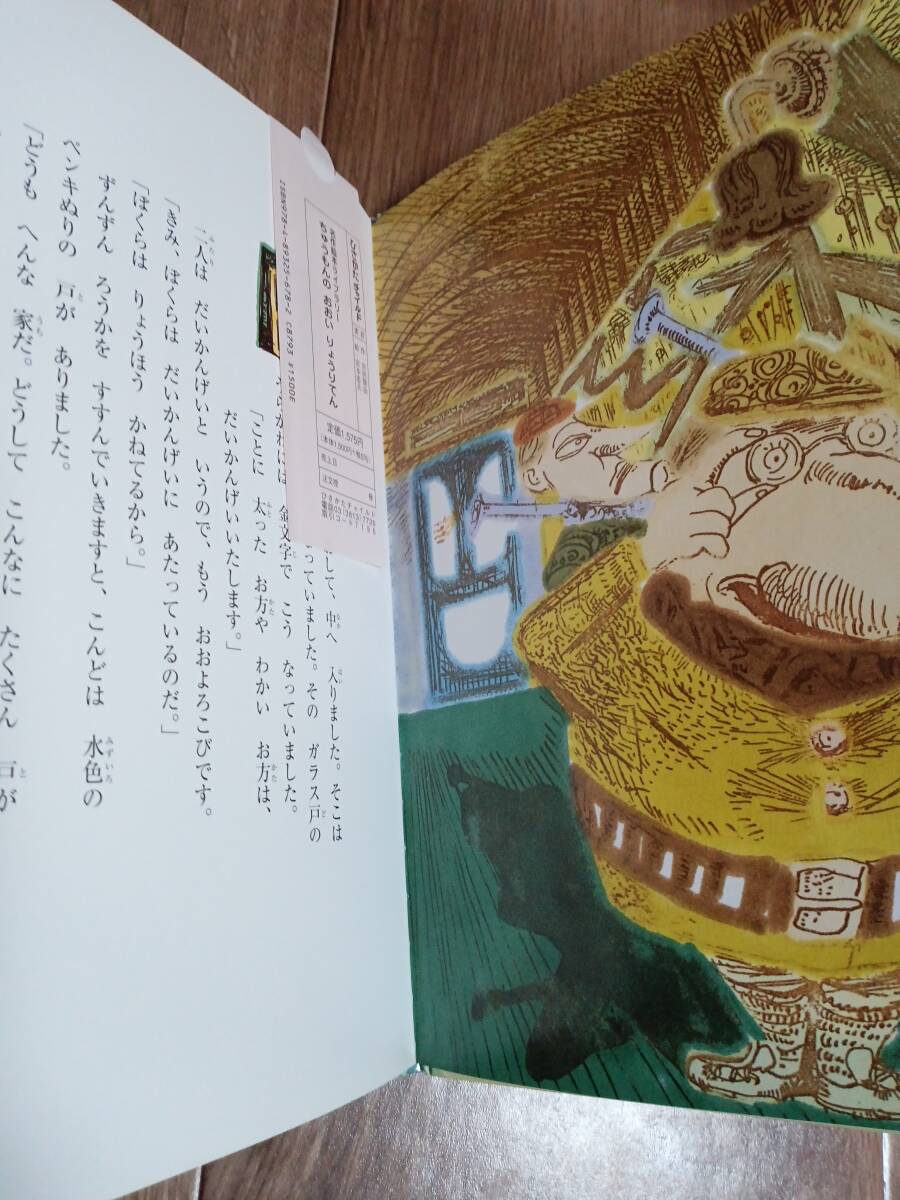 ひさかたチャイルド
ちゅうもんの おおい りょうりてん
定価1,575円
売上日
ひさかたチャイルド
ISBN978-4-89325-678-2 C8793 ¥1500E
して、中へ 入りました。そこは
っていました。その ガラス戸の
らがわには、金文字で こう なっていました。
「ことに 太った お方や わかい お方は、
だいかんげいいたします。」
二人は だいかんげいと いうので、もう おおよろこびです。
「きみ、ぼくらは だいかんげいに あたっているのだ。」
「ぼくらは りょうほう かねてるから。」
ずんずん ろうかを すすんでいきますと、こんどは 水色の
ペンキぬりの 戸が ありました。
「どうも へんな 家だ。どうして こんなに たくさん 戸が